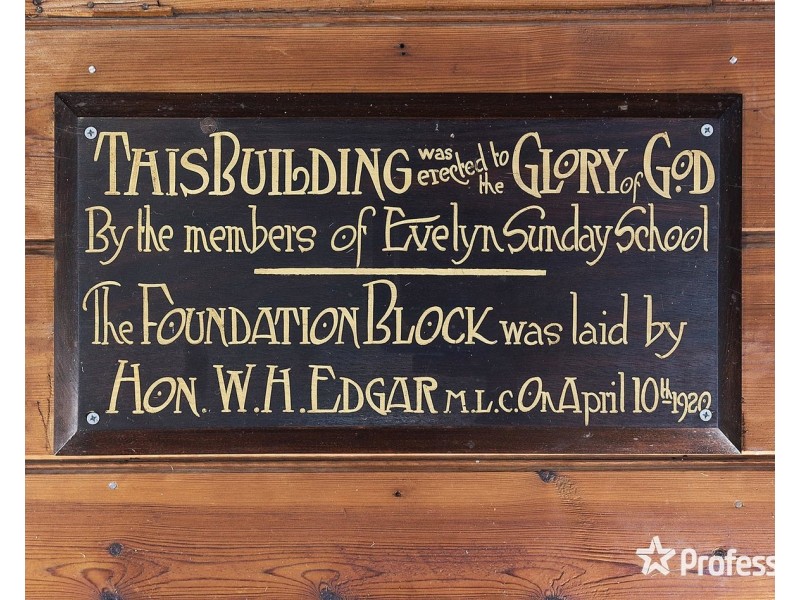 THIS BUILDING was erected to the GLORY of GOD
By the members of Evelyn Sunday School
The FOUNDATION BLOCK was laid by
HON. W. H. EDGAR M.L.C. On April 10th 1920
Profess